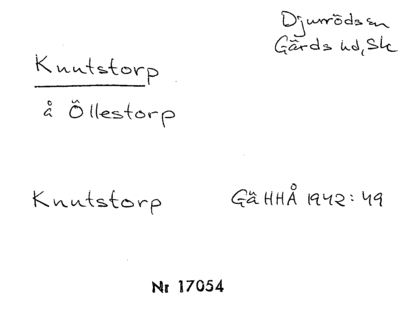 Djurröds sn
Gärds hd, Sk
Knutstorp
å Öllestorp
Knutstorp GäHHÅ 1942: 49
Nr 17054